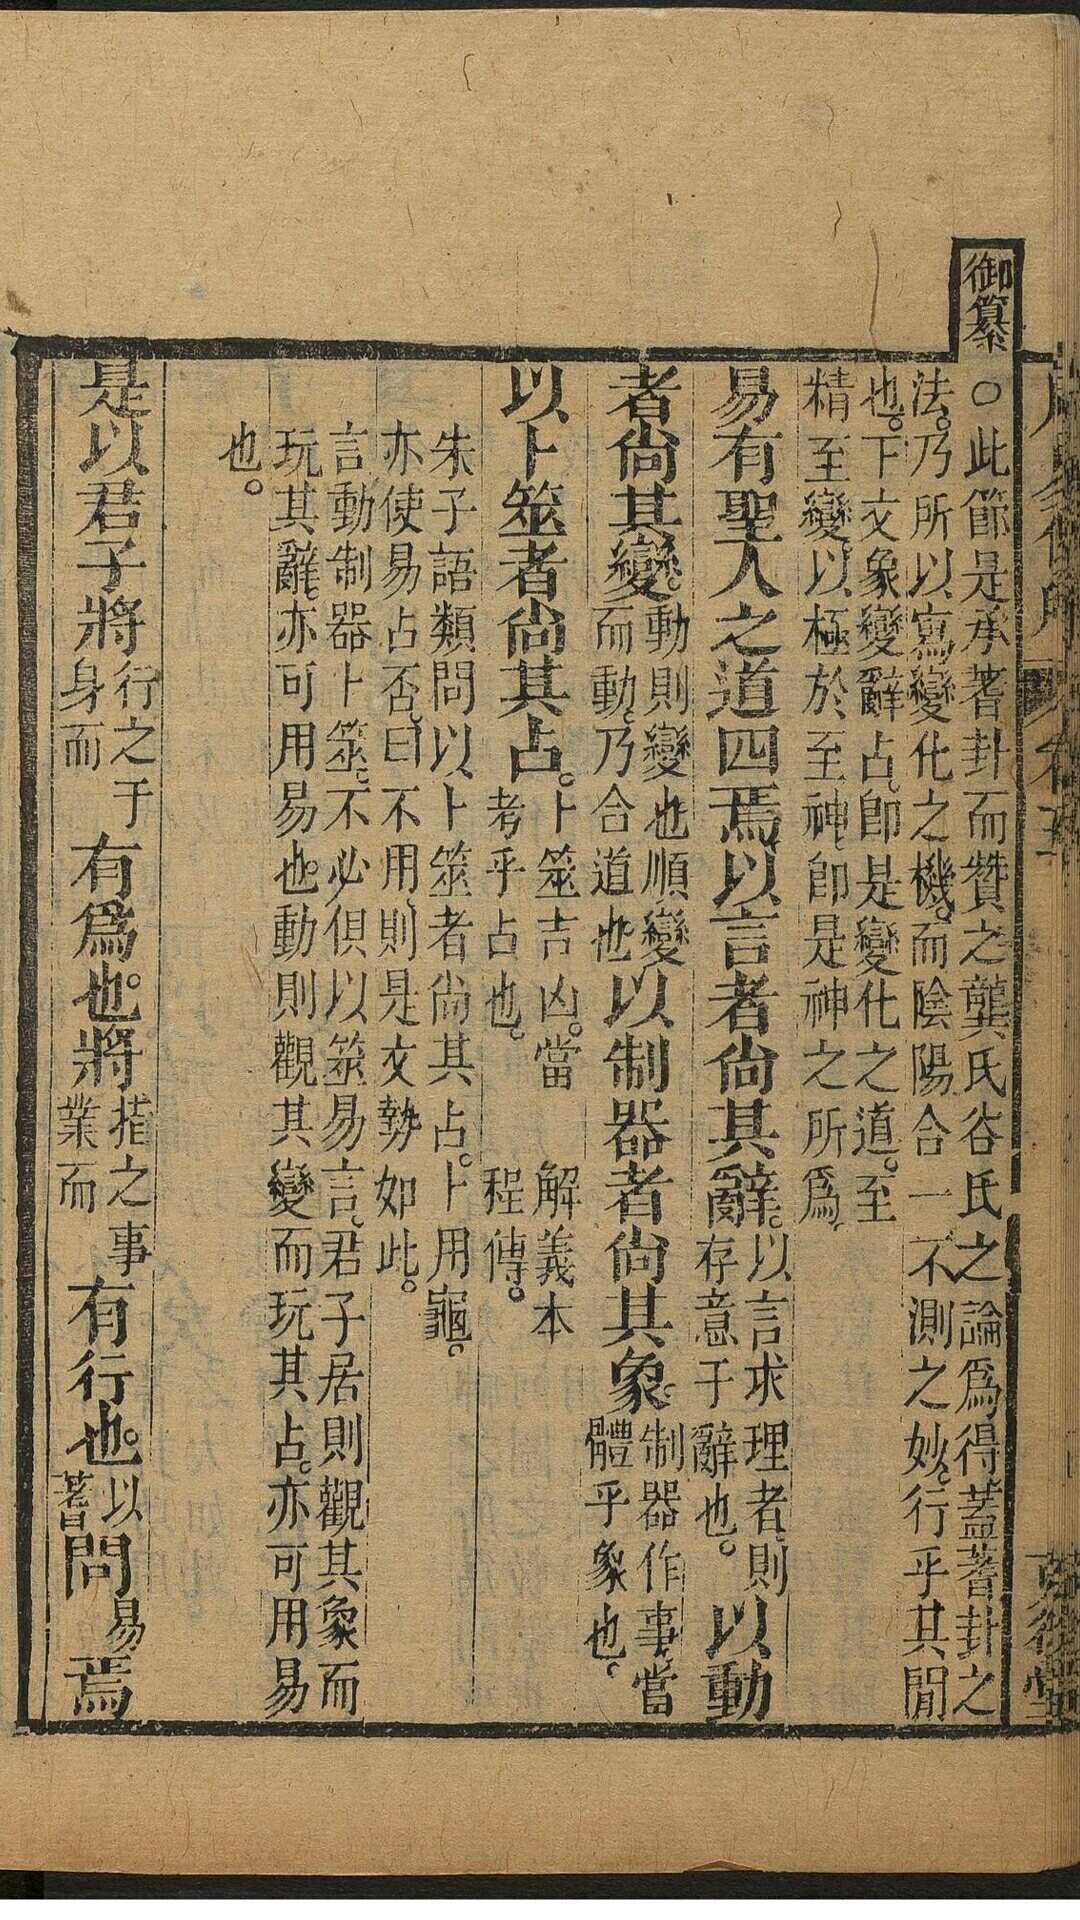 御纂
○此節是承蓍卦而贊之龔氏谷氏之論爲得。蓋蓍卦之
法。乃所以寫變化之機。而陰陽合一不測之妙。行乎其間
也。下文象變辭占。即是變化之道。至
精至變。以極於至神。即是神之所爲。
易有聖人之道四焉以言者尚其辭。以言求理者。則存意于辭也。以動
者尚其變。動則變也順變而動。乃合道也。以制器者尚其象。制器作事。當體乎象也。
以卜筮者尚其占。卜筮吉凶。當考乎占也。解義本程傳。
朱子語類問以卜筮者尚其占。卜用龜。
亦使易占否。曰不用。則是文勢如此。
言動制器卜筮。不必俱以筮易言。君子居則觀其象而
玩其辭。亦可用易也。動則觀其變而玩其占。亦可用易
也。
是以君子將行之于身而有爲也。將措之事業而有行也。以蓍問易焉